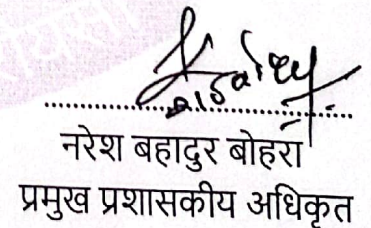 नरेश बहादुर बोहरा
प्रमुख प्रशासकीय अधिकृत